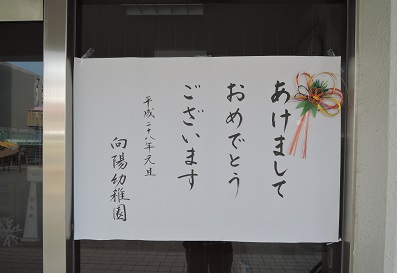 あけまして
おめでとう
ございます
平成二十八年元旦
向陽幼稚園